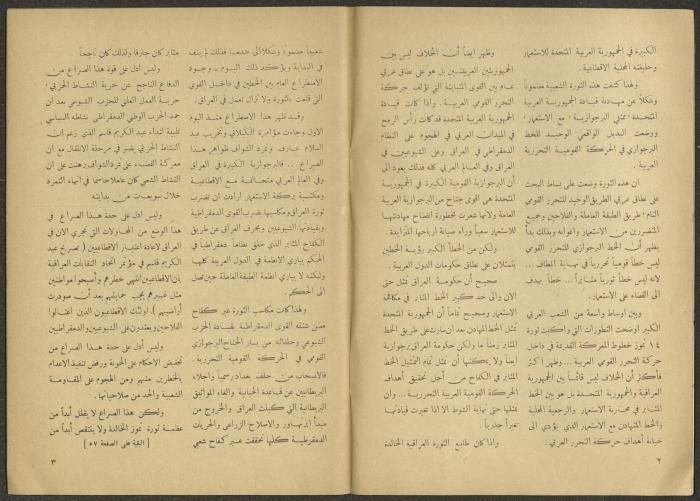 الكبيرة في الجمهورية العربية المتحدة للاستعمار
وحليفته المحلية الاقطاعية .
وهذا كشفت هذه الثورة الشعبية مضموناً
وشكلاً عن مهادنة قيادة الجمهورية العربية
المتحدة، ممثلي البرجوازية - مع الاستعمار،
ووضعت البديل الواقعي الوحيد للخط
البرجوازي في الحركة القومية التحررية
العربية .
ان هذه الثورة وضعت على بساط البحث
على نطاق عربي الطريق الوحيد للتحرر القومي
التام ؛ طريق الطبقة العاملة والفلاحين وجميع
المتضررين من الاستعمار واعوانه وبذلك بدأ
يظهر أن الخط البرجوازي للتحرر القومي
ليس خطاً قومياً تحررياً في نهاية المطاف ...
لانه ليس خطاً ثورياً مثابراً ... خطاً يهدف
الى القضاء على الاستعمار .
وبين اوساط واسعة من الشعب العربي
الكبير اوضحت التطورات التي واكبت ثورة
١٤ تموز خطوط المعركة القديمة في داخل
حركة التحرر القومي العربية ... وظهر اكثر
فأكثر أن الخلاف ليس قائماً بين الجمهورية
العراقية والجمهورية المتحدة بل هو بين الخط
المثابر في محاربة الاستعمار والرجعية المحلية
والخط المتهادن مع الاستعمار الذي يؤدي الى
خيانة أهداف حركة التحرر العربي .
وظهر ايضاً أن الخلاف ليس بين
الجمهوريتين العربيتين بل هو على نطاق عربي
عام بين القوى المتباينة التي تؤلف حركة
التحرر القومي العربية . واذا كانت قيادة
الجمهورية العربية المتحدة قد كانت رأس الرمح
في الميدان العربي في الهجوم على النظام
الديمقراطي في العراق وعلى الشيوعيين في
العراق وفي العالم العربي كله فذلك يعود الى
أن البرجوازية القومية الكبيرة في الجمهورية
المتحدة هي اقوى جناح من البرجوازية العربية
عامة ولانها شعرت بخطورة انفضاح مهادنتها
للاستعمار سعياً وراء صيانة ارباحها المتزايدة .
ولكن من الخطأ الكبير رؤية الخطين
يتمثلان على نطاق حكومات الدول العربية .
صحيح أن حكومة العراق تمثل حتى
الآن والى حد كبير الخط المثابر في مكافحة
الاستعمار وصحيح تماماً أن الجمهورية المتحدة
تمثل الخط المهادن بعد ان سارت على طريق الخط
المثابر زمناً ما ولكن حكومة العراق برجوازية
ايضاً ولا يمكنها أن تمثل تمام التمثيل الخط
المثابر في الكفاح من أجل تحقيق أهداف
حركة التحرر القومي العربية ... وان
تمثلها حتى نهاية الشوط الا اذا تغيرت قيادتها
تغيراً جذرياً .
واذا كان طابع الثورة العراقية الخالدة
٢
شعبياً مضموناً وشكلاً الى حد ما فذلك لم ينف
في البداية ويؤكد ذلك اليوم - وجود
الاصطراع العام بين الخطين في داخل القوى
التي قامت بالثورة ولا تزال تعمل في العراق .
وقد ظهر هذا الاصطراع منذ اليوم
الاول وجاءت مؤامرة الكيلاني وتخريب عبد
السلام عارف وتمرد الشواف ظواهر هذا
الصراع ... فالبرجوازية الكبيرة في العراق
وفي العالم العربي متحالفة مع الاقطاعية
ومكتسبة بركة الاستعمار ارادت ان تضرب
ثورة العراق ومكاسبها بضرب القوى الديمقراطية
وبقيادتها الشيوعيين وبحرف العراق عن طريق
الكفاح المثابر الذي خلق نظاماً ديمقراطياً في
الحكم يباري الانظمة في الدول العربية كلها
ولكنه لا يباري انظمة الطبقة العاملة حين تصل
الى الحكم .
ولهذا كانت مكاسب الثورة عبر كفاح
مضن شنته القوى الديمقراطية بقيادة الحزب
الشيوعي وحلفائه من يسار الجناح البرجوازي
القومي في الحركة القومية التحررية .
فالانسحاب من حلف بغداد رسمياً واجلاء
البريطانيين عن قاعدة الحبانية والغاء المواثيق
البريطانية التي كبلت العراق والخروج من
مبدأ ايزنهاور والاصلاح الزراعي والحريات
الديمقراطية كلها تحققت عبر كفاح شعبي
مثابر كان جارفاً ولذلك كان ناجحاً
وليس ادل على قوة هذا الصراع من
الدفاع الناجح عن حرية النشاط الحزبي ،
حرية العمل العلني للحزب الشيوعي بعد ان
جمد الحزب الوطني الديمقراطي نشاطه السياسي
تلبية لنداء عبد الكريم قاسم الذي زعم ان
النشاط الحزبي يضر في مرحلة الانتقال مع ان
معركة القضاء على تمرد الشواف برهنت على ان
النشاط الشعبي كان عاملاً حاسماً في انهاء التمرد
خلال سويعات من بدايته
وليس ادل على حدة هذا الصراع في
هذا الوضع من المحاولات التي تجري الان في
العراق لاعادة اعتبار الاقطاعيين ( تصريح عبد
الكريم قاسم في مؤتمر اتحاد النقابات العراقية
بان الاقطاعيين انتهى خطرهم وأصبحوا مواطنين
مثل غيرهم يجب حمايتهم بعد أن صودرت
أراضيهم ) ، اولئك الاقطاعيون الذين اغتالوا
الفلاحين ويعتدون على الشيوعيين والديمقراطيين
وليس أدل على حدة هذا الصراع من
تخفيض الاحكام على الخونة ورفض تنفيذ الاعدام
بالخطرين منهم ومن الهجوم على المقاومة
الشعبية والحد من صلاحياتها .
ولكن هذا الصراع لا يقلل أبداً من
عظمة ثورة تموز الخالدة ولا ينتقص أبداً من
[ البقية على الصفحة ٥٧ ]
٣